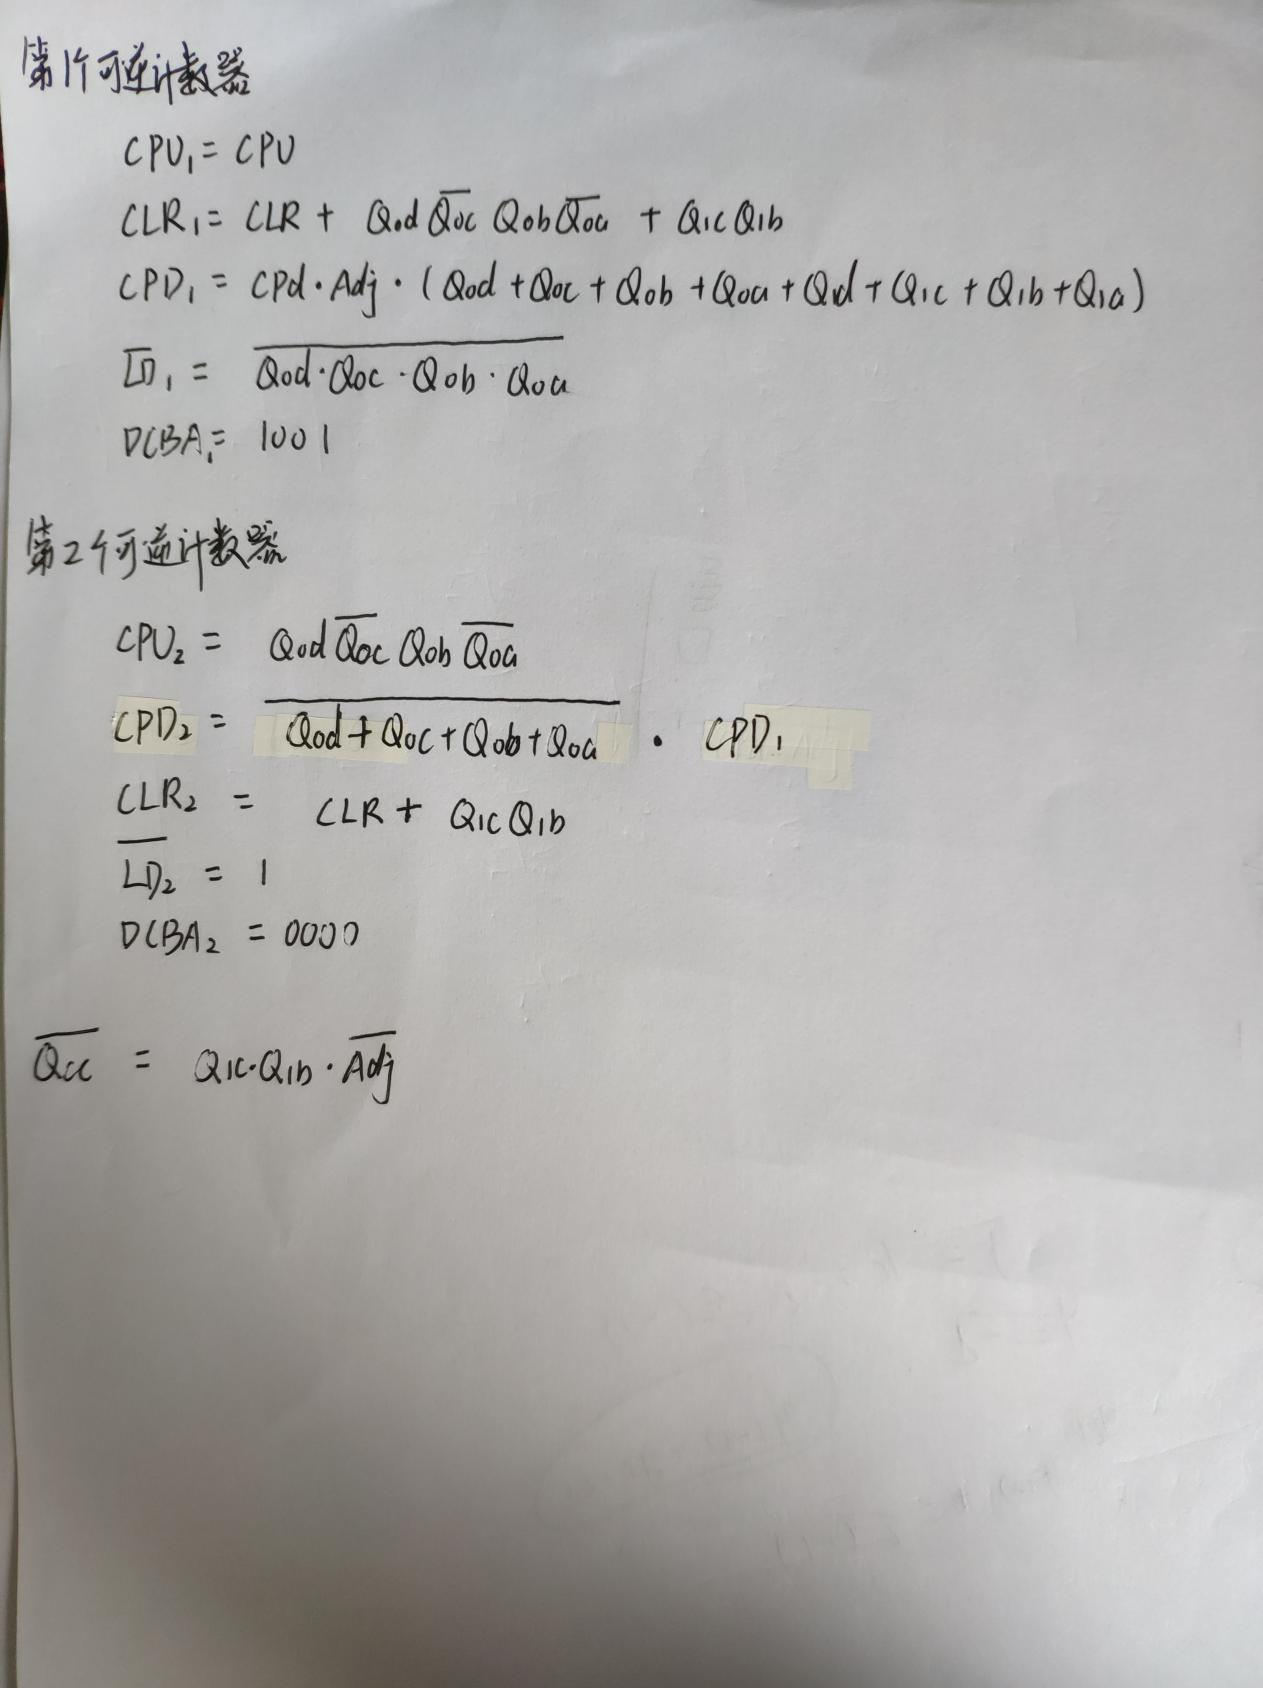 第1个可逆计数器
CPU₁ = CPU
CLR₁ = CLR + Q₀d Q̅₀c Q₀b Q̅₀a + Q₁c Q₁b
CPD₁ = CPd · Adj · (Q₀d + Q₀c + Q₀b + Q₀a + Q₁d + Q₁c + Q₁b + Q₁a)
L̅D̅₁ = \overline{Q₀d · Q₀c · Q₀b · Q₀a}
DCBA₁ = 1001
第2个可逆计数器
CPU₂ = Q₀d \overline{Q₀c} Q₀b \overline{Q₀a}
CPD₂ = \overline{Q₀d + Q₀c + Q₀b + Q₀a} · CPD₁
CLR₂ = CLR + Q₁c Q₁b
\overline{LD₂} = 1
DCBA₂ = 0000
\overline{Qcc} = Q₁c · Q₁b · \overline{Adj}